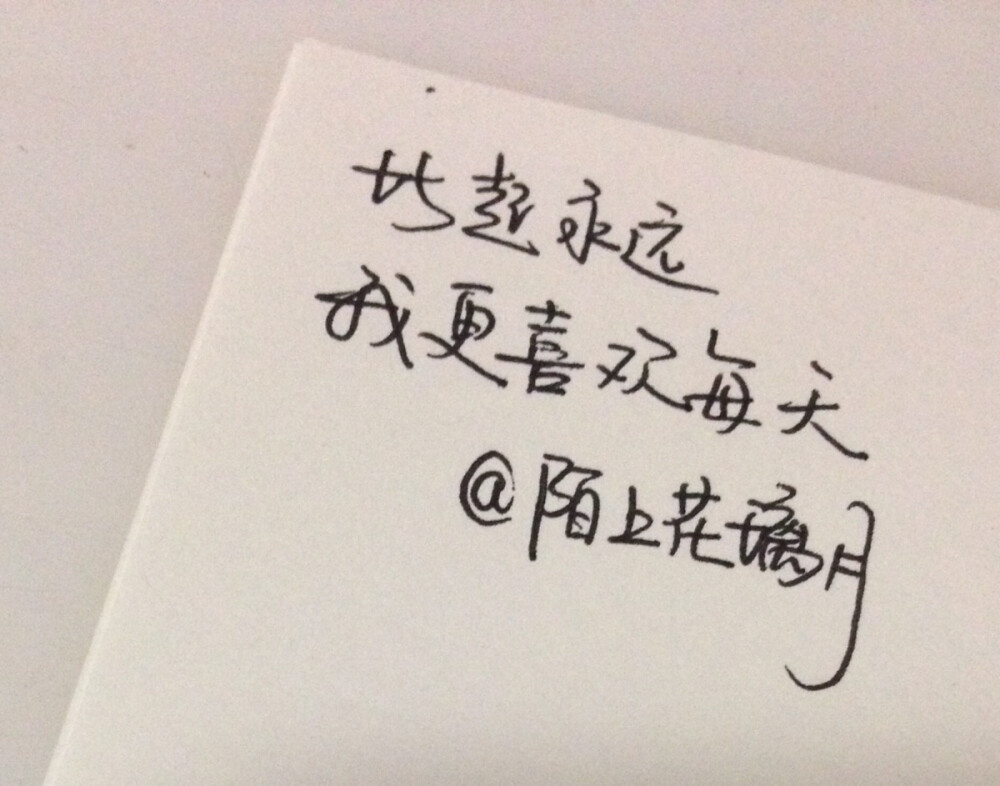 比起永远
我更喜欢每天
@陌上花璃月